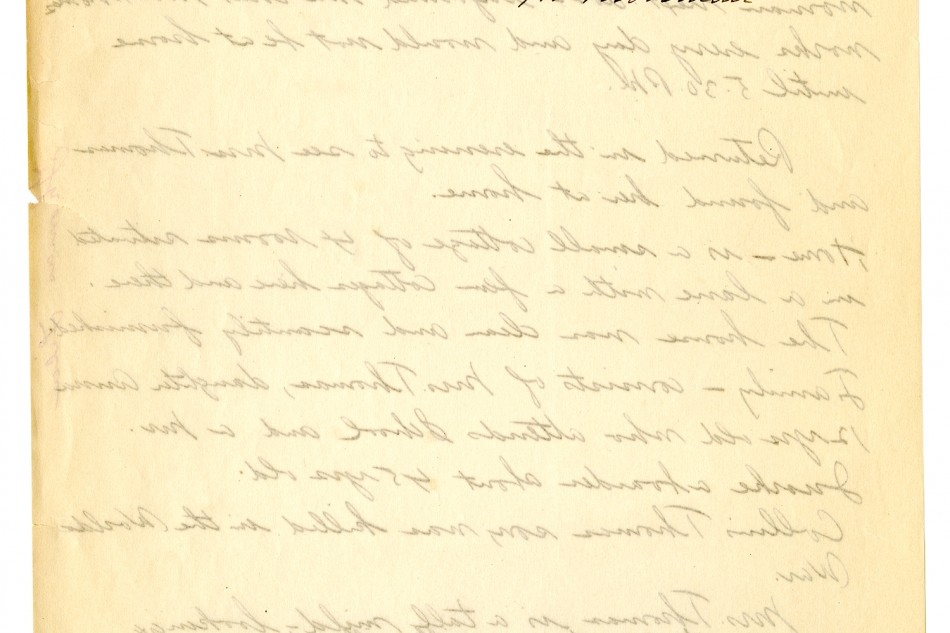 works every day and would not be at home
until 5:30 P.M.
Returned in the evening to see Mrs. Thomas
and found her at home.
Home - is a small cottage of 4 rooms situated
in a lane with a few cottages here and there.
The home was clean and scantily furnished.
Family - consists of Mrs. Thomas, daughter
yrs old who attends School and a Mr.
a boarder about 45 yrs old.
Thomas son, was killed in the World
War.
Mrs. Thomas is a tall, mild-looking